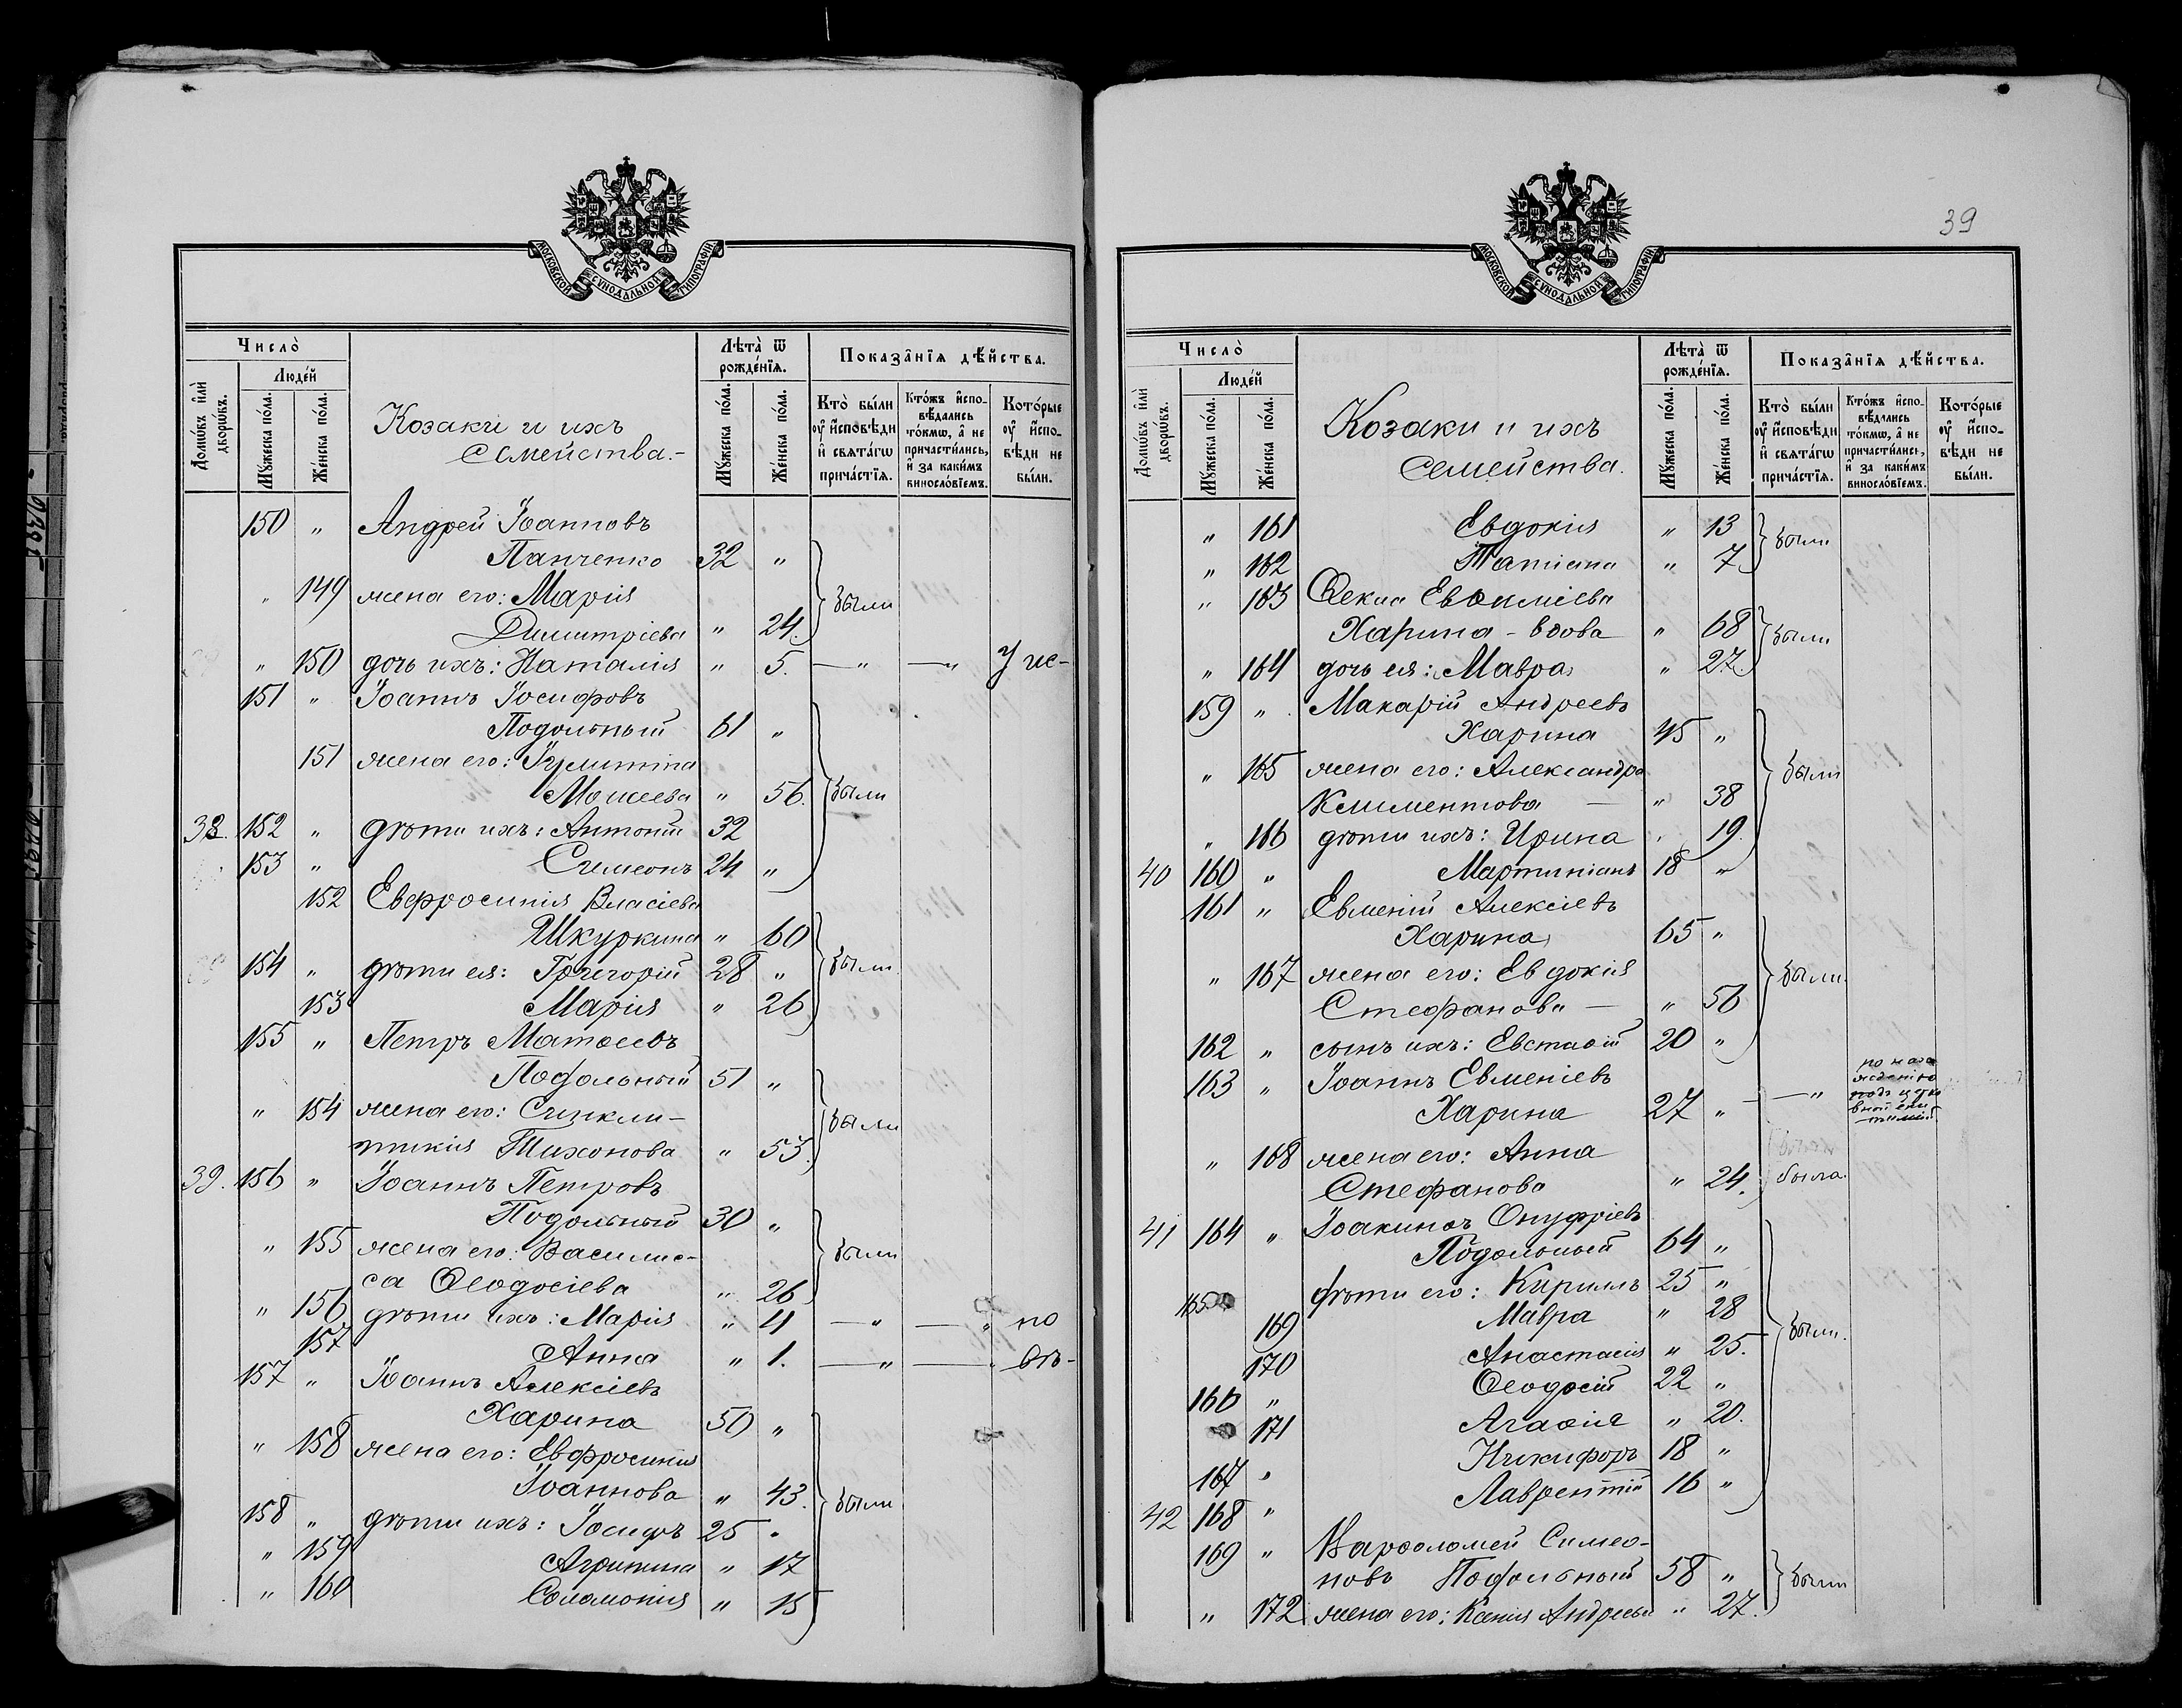 МОСКОВСКОЙ СУНОДАЛЬНОЙ ТИПОГРАФІИ
Число̀
Домѡ́въ и҆лѝ дворѡ́въ.
Людє́й
Мꙋ́жеска по́ла.
Же́нска по́ла.
Козаки и ихъ
Семейства.-
Лѣта̀ ѿ рождє́нїѧ.
Мꙋ́жеска по́ла.
Же́нска по́ла.
Показа̑нїѧ дѣ́йства.
Кто̀ бы́ли ᲂу҆ и҆сповѣ́ди и҆ свѧта́гѡ прича́стїѧ.
Кто́жъ и҆спо-вѣ́дались то́кмѡ, а҆ не причасти́лись, и҆ за каки́мъ виносло́вїемъ.
Кото́рые ᲂу҆ и҆спо-вѣ́ди не бы́ли.
150 " Андрей Іоанновъ
Панченко 32 "
" 149 жена его: Марія
Димитріева " 24. были
" 150 дочь ихъ: Наталія " 5. — " — " У ис-
151 " Іоаннъ Іосифовъ
Подольный 61 "
151 жена его: Іулитта
Моисеева " 56. были
38. 152 " дѣти ихъ: Антоній 32
153 " Симеонъ 24 "
152 Евфросинія Власіева
Шкуркина " 60
154 " дѣти ея: Григорій 28 " были
153 Марія " 26
155 " Петръ Матѳеевъ
Подольный 51 "
" 154 жена его: Синкли- были
тикія Тихонова " 53.
39. 156 " Іоаннъ Петровъ
Подольный 30 "
" 155 жена его: Василис- были
са Ѳеодосіева " 26
" 156 дѣти ихъ: Марія " 4 — " — " по
157 Анна " 1. — " — " вѣ-
157 " Іоаннъ Алексіевъ
Харина 50 "
" 158 жена его: Евфросинія
Іоаннова " 43. были
158 " дѣти ихъ: Іосифъ 25 "
" 159 Агрипина " 17
" 160 Соломонія " 15
39
МОСКОВСКОЙ СУНОДАЛЬНОЙ ТИПОГРАФІИ
Число̀
Домѡ́въ и҆лѝ дворѡ́въ.
Людє́й
Мꙋ́жеска по́ла.
Же́нска по́ла.
Козаки и ихъ
Семейства.
Лѣта̀ ѿ рождє́нїѧ.
Мꙋ́жеска по́ла.
Же́нска по́ла.
Показа̑нїѧ дѣ́йства.
Кто̀ бы́ли ᲂу҆ и҆сповѣ́ди и҆ свѧта́гѡ прича́стїѧ.
Кто́жъ и҆спо-вѣ́дались то́кмѡ, а҆ не причасти́лись, и҆ за каки́мъ виносло́вїемъ.
Кото́рые ᲂу҆ и҆спо-вѣ́ди не бы́ли.
" 161 Евдокія " 13 были
" 162 Татіана " 7.
" 163 Ѳекла Евѳиміева
Харина - вдова " 68 были
" 164 дочь ея: Мавра " 27.
159 " Макарій Андреевъ
Харина 45 "
" 165 жена его: Александра были
Климентова — " 38
" 166 дѣти ихъ: Ирина " 19.
40 160 " Мартиніанъ 18 "
161 " Евменій Алексіевъ
Харина 65 "
" 167 жена его: Евдокія были.
Стефанова — " 56
162 " сынъ ихъ: Евстаѳій 20 "
163 " Іоаннъ Евменіевъ
Харина 27 " — "
" 168 жена его: Анна
Стефанова " 24. была.
41 164 " Іоакинѳъ Онуфріевъ
Подольный 64 "
165 дѣти его: Кириллъ 25 "
169 Мавра " 28
170 Анастасія " 25. были.
166 " Ѳеодосій 22 "
171 Агаѳія " 20.
167 " Никифоръ 18 "
42 168 " Лаврентій 16 "
169 " Варѳоломей Симео-
новъ Подольный 58 " были
" 172 жена его: Ксенія Андреева " 27.